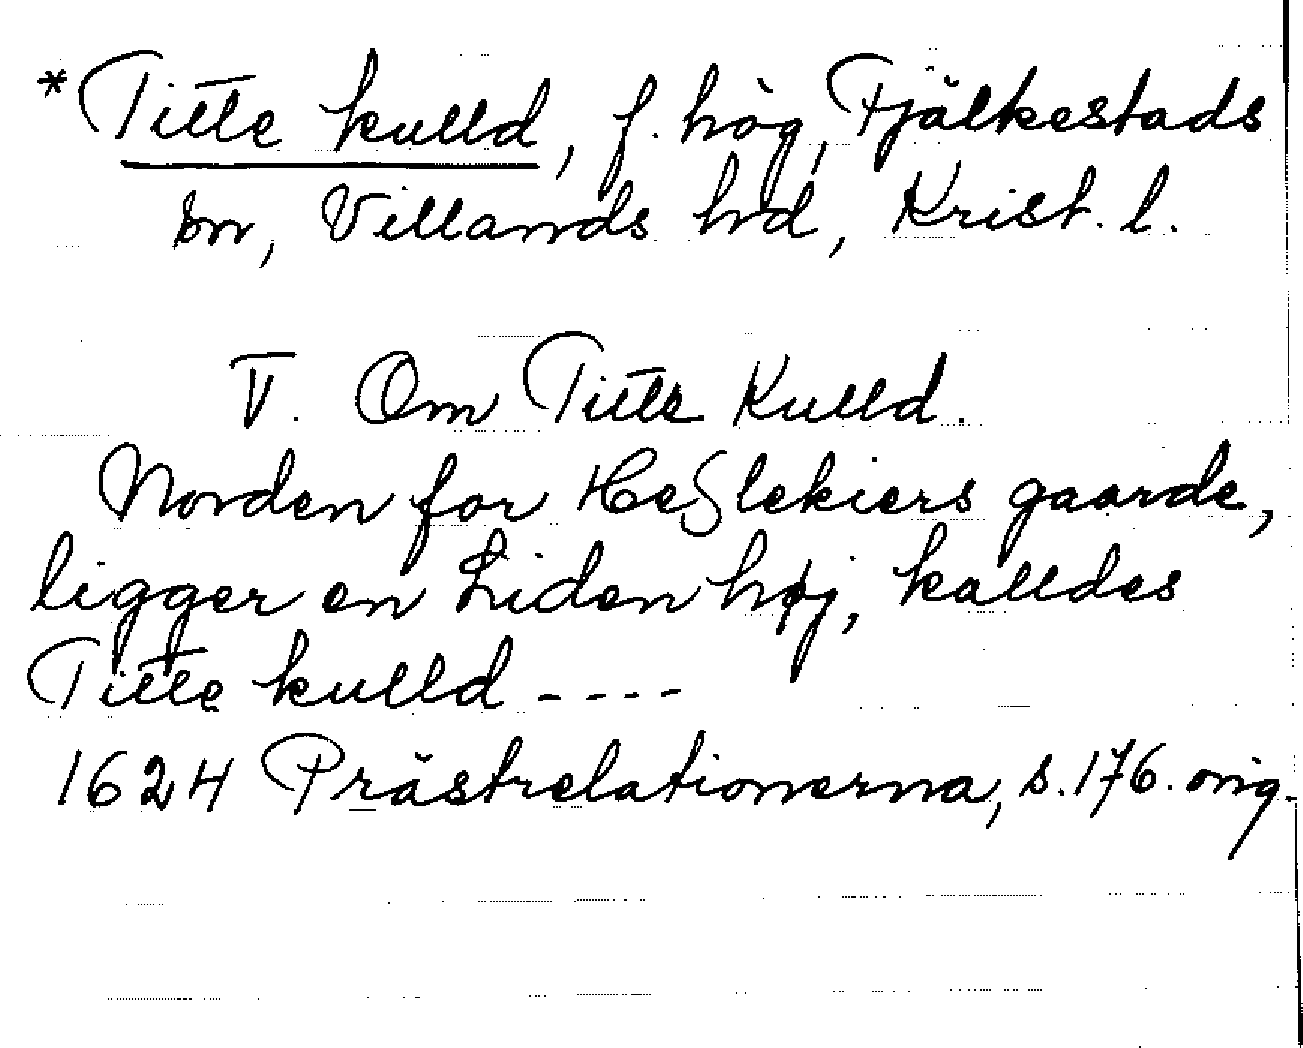 *Titte kulld, f. hög, Fjälkestads
sn, Villands hd, Krist. l.
V. Om Titte Kulld.
Norden for Heßlekiers gaarde,
ligger en Liden høj, kalldes
Titte kulld - - - -
1624 Prästrelationerna, s. 176. orig.